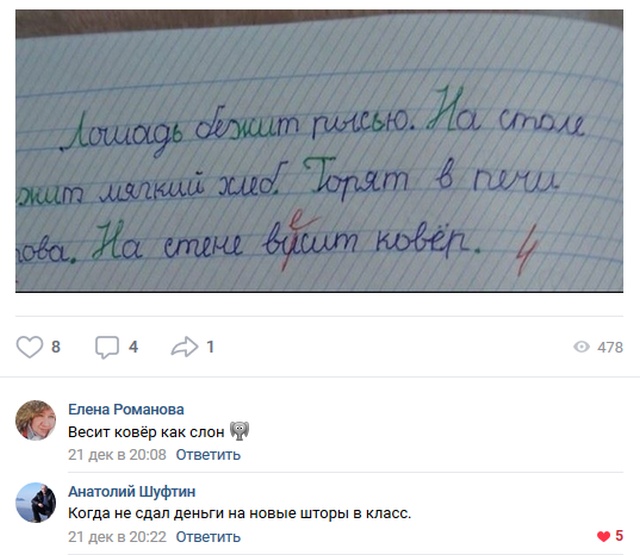 Лошадь бежит рысью. На столе
жит мягкий хлеб. Горят в печи
ова. На стене висит ковёр. 4
е
8 4 1 478
Елена Романова
Весит ковёр как слон
21 дек в 20:08 Ответить
Анатолий Шуфтин
Когда не сдал деньги на новые шторы в класс.
21 дек в 20:22 Ответить 5